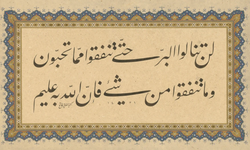 لن تنالوا البر حتی تنفقوا مما تحبون
وما تنفقوا من شیئ فان الله به علیم